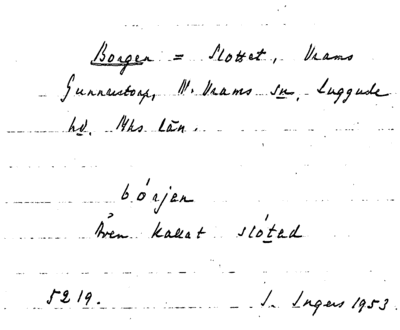 Borgen = Slottet, Vrams
Gunnarstorp, N. Vrams sn, Luggude
hd. Mhs län.
bórjen
Även kallat slótad
5219. I. Ingers 1953.